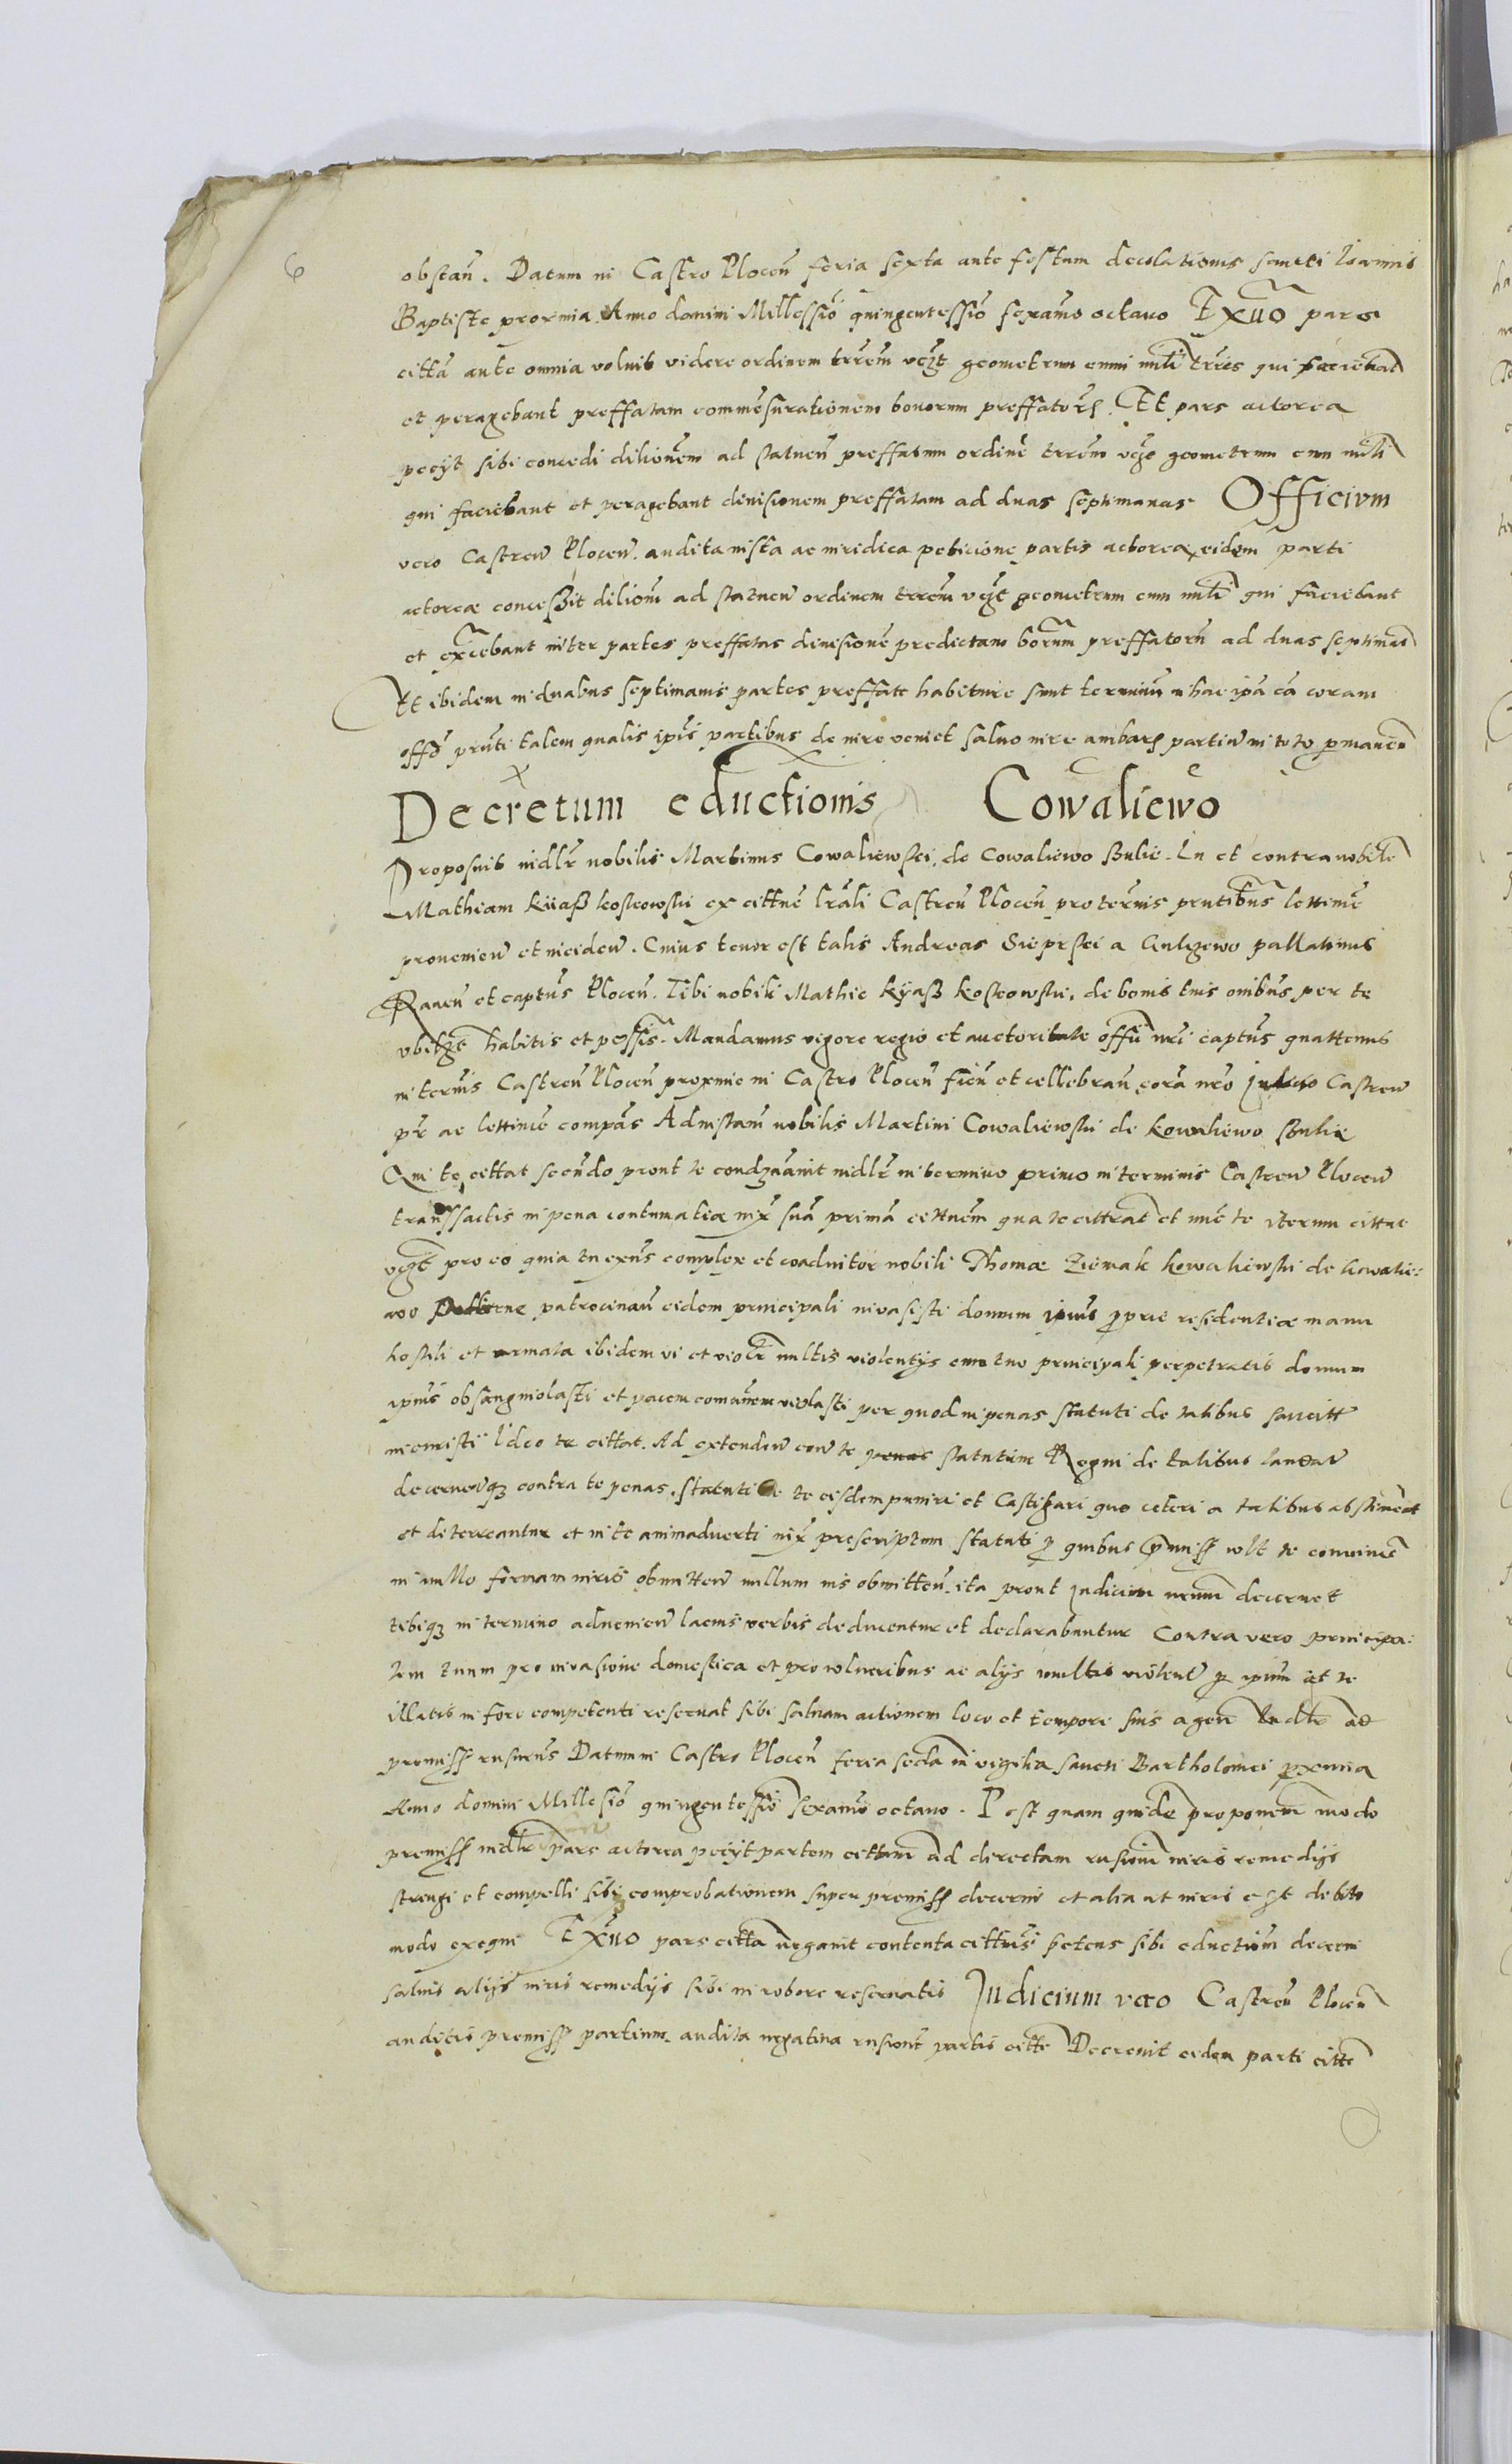 6
obstan̄. Datum in Castro Plocen̄ feria sexta ante festum decolationis sancti Joannis
Baptiste proxmia. Anno domini Millessiō quingentessiō sexam̄o octauo Ex aduo pars
citta ante omnia voluit videre ordinem terrēm vczt geometrum cum mlti terrēs qui faciebat
et peragebant preffatam commēsurationem bonorum preffator. Et pars actorea
pecyt sibi concedi dilionem ad statuen̄ preffatum ordinē terrēm vczt geometrum cum mlti
qui faciebant et peragebant diuisionem preffatam ad duas septimanas Officium
vero Castren̄ Plocen̄ audita iusta ac iuridica peticione partis actorea, eidem parti
actoreæ concessit dilionē ad statuen̄ ordinem terrēm vczt geometrum cum mlti qui faciebant
et exrcebant inter partes preffatas diuisionē predictam borum preffatorū ad duas septimas
Et ibidem in duabus septimanis partes preffate habiture sunt terminum in hac ipā cā coram
offō prnti talem qualis ipis partibus de iure veniet saluo iure ambarum partium in toto permanen̄
Decretum eductionis Cowaliewo
Proposuit iudlr nobilis Martinus Cowaliewsci de Cowaliewo Sulie. In et contra nobile
Mathiam Kiiasz kossowski ex cittnē lrāli Castren̄ Plocen̄ pro termis prntibus lettimē
prouenien̄ et inciden̄. Cuius tenor est talis Andreas Sieprsci a Gulczewo pallatinus
Rauen̄ et captus Plocen̄. Tibi nobili Mathie Kÿasz kossowski, de bonis tuis omibus per te
vbilzt habitis et possis. Mandamus vigore regio et auctoritate offii nri captus quattenus
in termis Castren̄ Plocen̄ proxmie in Castro Plocen̄ fien̄ et cellebran̄ corā nro Judicio Castren̄
pr ac lettimē compās Ad instam̄ nobilis Martini Cowaliewski de Kowaliewo Sulie
Qui te cittat secundo prout te condzāuit iudlr in termino primo in terminis Castren̄ Plocen̄
transsactis in pena contumatiæ iux suā primā cittnēm qua te cittrat et nuc te iterum cittat
vczt pro eo quia tu exns complex et coadiutor nobili Thomæ Ziemak Kowaliewski de Cowalie:
wo patrocinan̄ eidem principali inuasisti domum ipius proprie residentiæ manu
hostili et armata ibidem vi et violtr multis violentÿs cum tuo principali perpetratis domum
ipius obsanguiolasti et pacem comūnem violasti per quod in penas statuti de talibus sancitt
incurristi Ideo te cittat. Ad extenden̄ con̄ te statutum Regni de talibus laudat
decernenqz contra te penas. statuti te eisdem puniri et Castigari quo ceteri a talibus abstineāt
et deterreantur et in te animaduerti iux prescriptum statuti pro quibus premiss vlt te conuincē
in nullo formam iuris obmitten̄ nullum ius obmitten̄, ita prout Judicium nrum decernet
tibiqz in termino aduenien̄ lacius verbis deducentur et declarabuntur Contra vero principa:
lem tuum pro inuasione domestica et pro vulneribus ac alÿs multis violent per ipum et te
illatis in fore competenti reseruat sibi saluam actionem loco et tempore suis agen̄ Iudlr ad
premiss rusurus Datum in Castro Plocen̄ feria seda in vigilia sancti Bartholomei proxmia
Anno domini Millesiō quingentessiō sexamō octauo. Post quam quidē proponem modo
premiss iudlr pars actorea pecyt partem cittam ad directam rusionē iuris remedÿs
strengi et compelli sibi comprobationem super premiss decerni et alia ut iuris est debito
modo exequi Ex aduo pars citta negauit contenta cittnis petens sibi eductionē decerni
saluis alÿs iuris remedÿs sibi in robore reseruatis Judicium vero Castren̄ Plocen̄
auditis premiss partium. audita negatiua rusionē partis citte Decreuit eidem parti citte